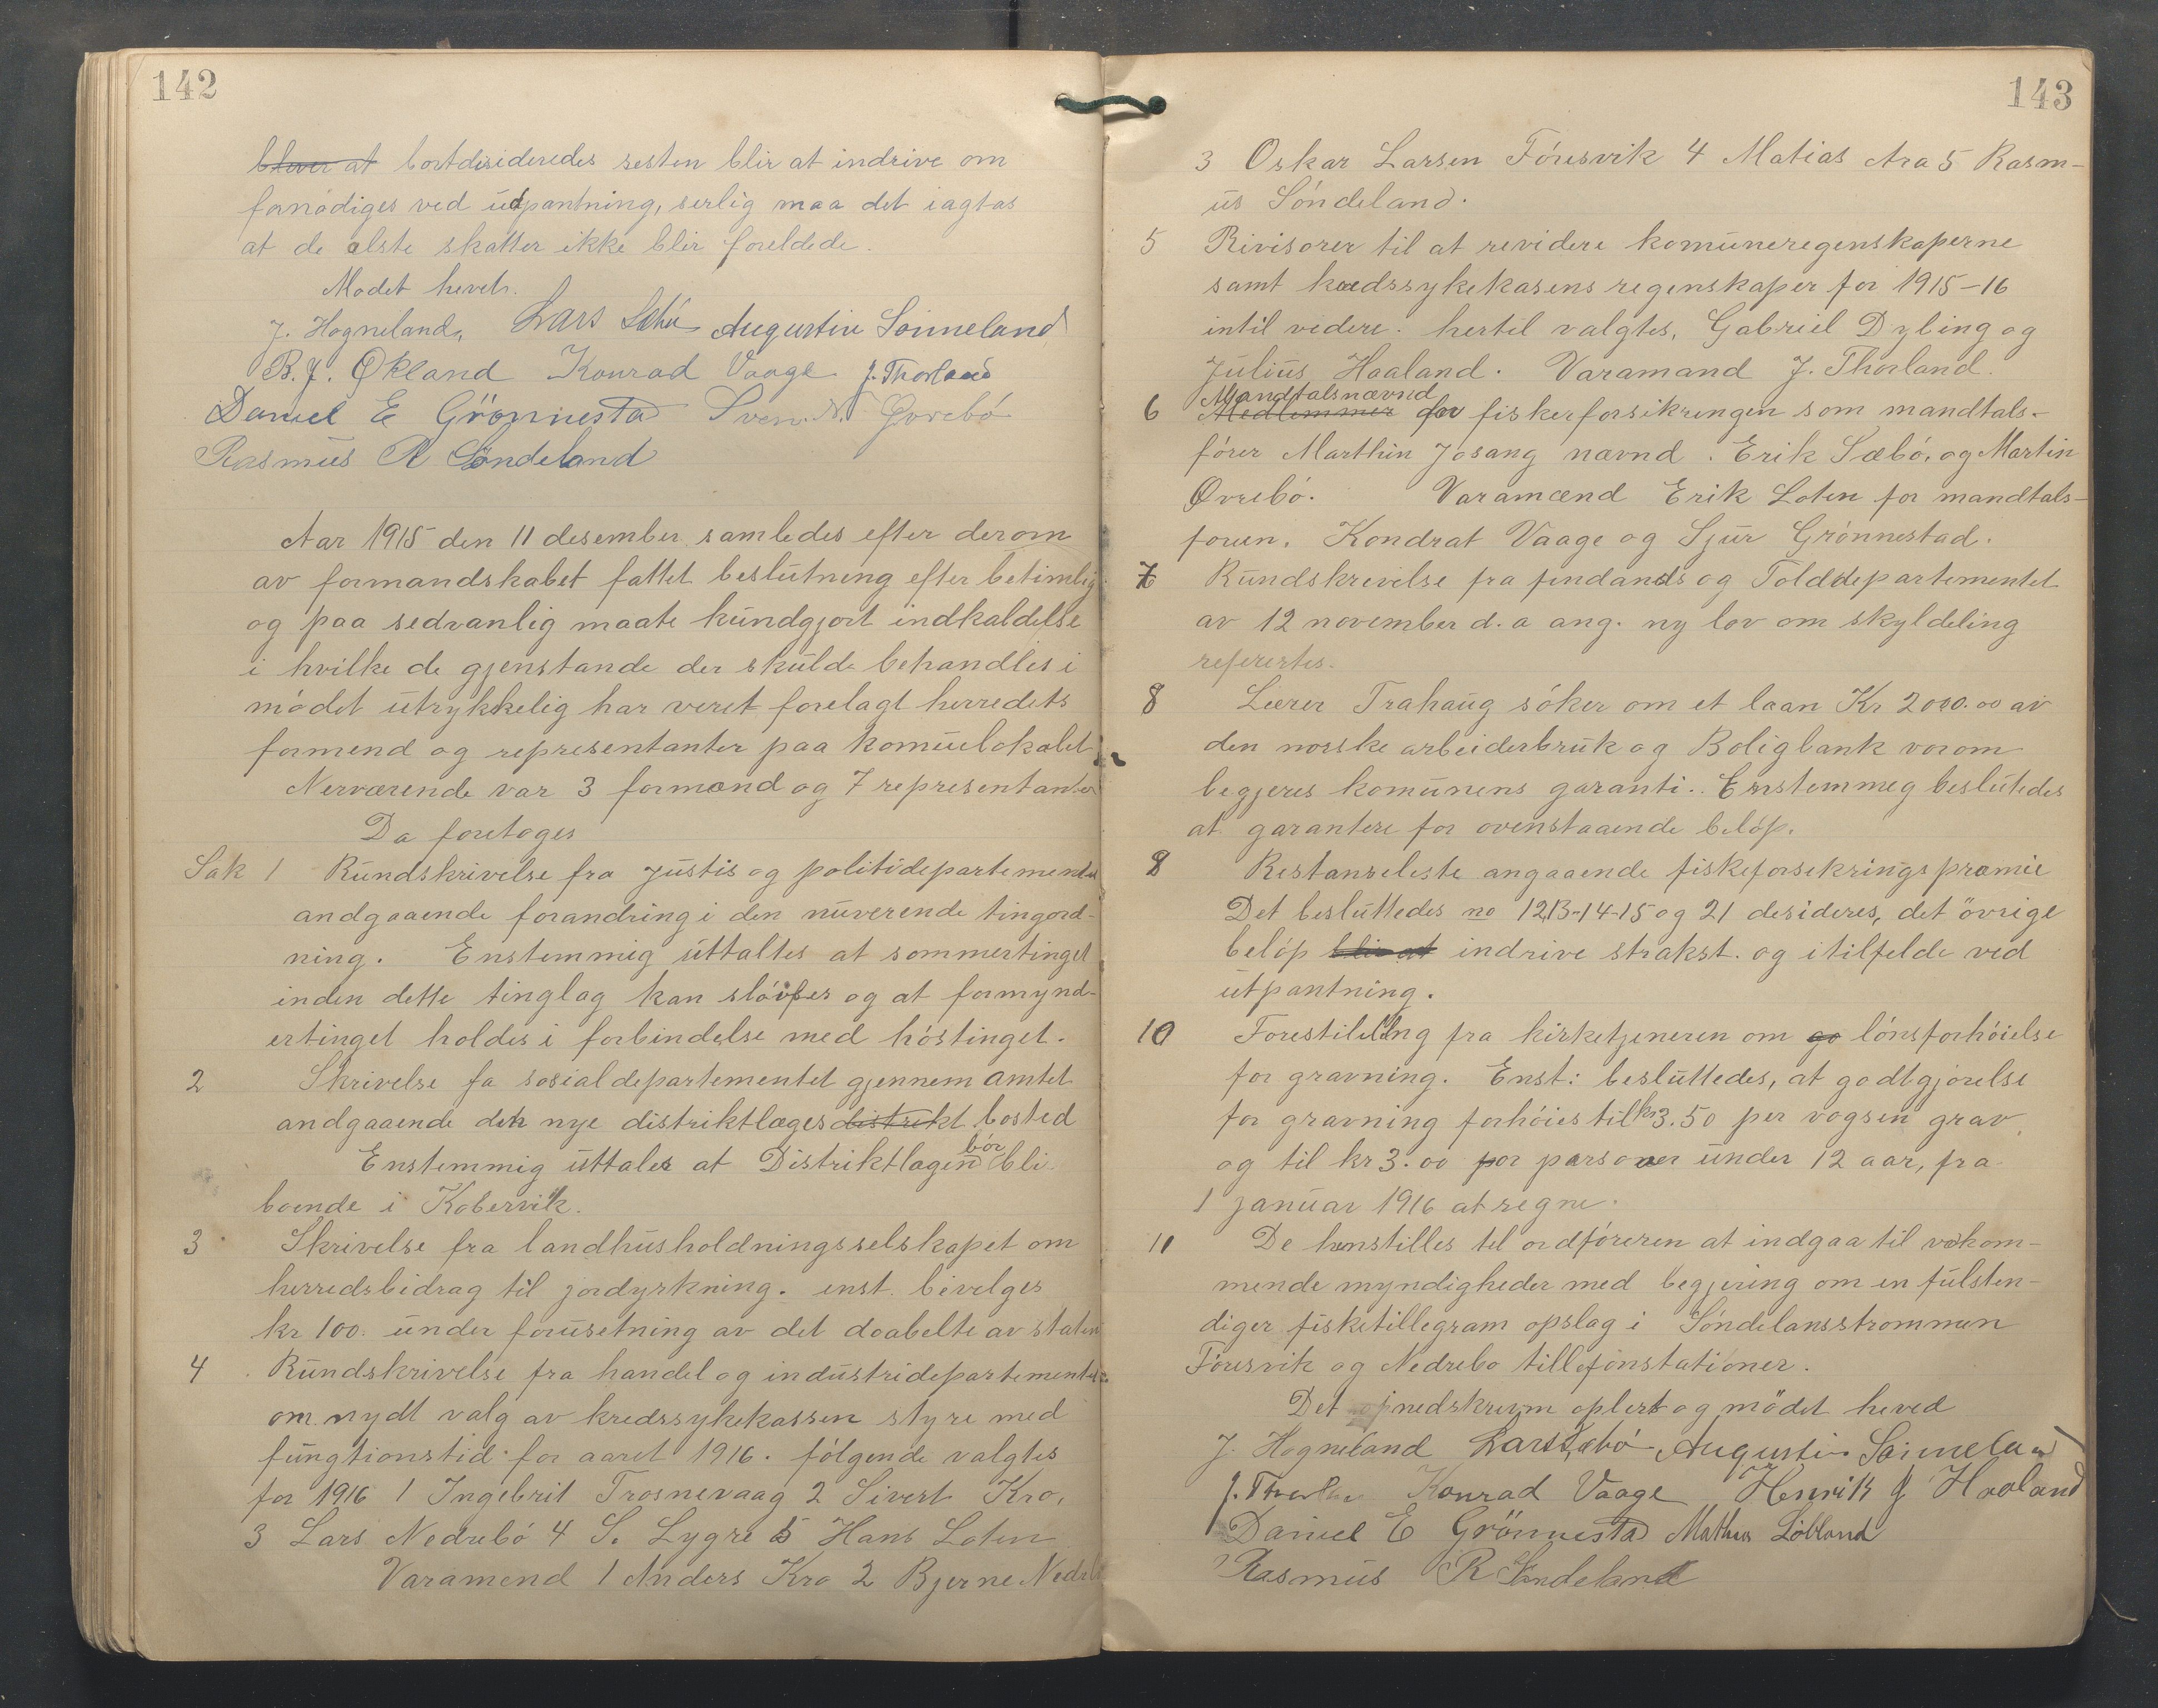 142
blever at bortdesideredes resten blir at indrive om
fornødiges ved udpantning, serlig maa det iagtas
at de elste skatter ikke blir foreldede.
Mødet hevet.
J. Hogneland, Lars Augustin Sønneland
B. J. Økland Konrad Vaage J. Thorland
Daniel E Grönnestad Sven N. Øvrebó
Rasmus R Söndeland
Aar 1915 den 11 desember samledes efter derom
av formandskabet fattet beslutning efter betimlig
og paa sedvanlig maate kundgjort indkaldelse
i hvilke de gjenstande der skulde behandles i
mödet utrykkelig har veret forelagt herredets
formend og representanter paa komunelokalet
Nerværende var 3 formænd og 7 representanter
Da foretoges
Sak 1 Rundskrivelse fra justis og politidepartementet
andgaaende forandring i den nuverende tingord-
ning. Enstemmig uttaltes at sommertinget
inden dette tinglag kan slöifes og at formynd-
ertinget holdes i forbindelse med höstinget.
2 Skrivelse fa sosialdepartementet gjennem amtet
andgaaende den nye distriktlæges distrikt bosted
Enstemmig uttales at Distriktlagen bör bli
boende i Kobervik.
3 Skrivelse fra landhusholdningsselskapet om
herredsbidrag til jordyrkning. enst. bevelges
kr 100. under forusetning av det doabelte av staten
4 Rundskrivelse fra handel og industridepartementet
om nydt valg av kredssykekassen styre med
fungtionstid for aaret 1916. fölgende valgtes
for 1916 1 Ingebrit Trosnevaag 2 Sivert Kro,
3 Lars Nedrebó 4 S. Lygre 5 Hans Loten
Varamend 1 Anders Kro 2 Bjerne Nedrebö
143
3 Oskar Larsen Föresvik 4 Matias Ara 5 Rasm-
us Söndeland.
5 Rivisorer til at revidere komuneregenskaperne
samt kredssykekasens regenskaper for 1915-16
intil videre. hertil valgtes, Gabriel Dyling og
Julius Haaland. Varamand J. Thorland.
Mandtalsnævnd
6 Medlemmer for fiskerforsikringen som mandtals-
förer Marthin Josang nævnd. Erik Sæbó, og Martin
Øvrebó. Varamænd Erik Loten for mandtals-
foren. Kondrat Vaage og Sjur Grönnestad.
7 Rundskrivelse fra findands og Tolddepartementet
av 12 november d. a ang. ny lov om skyldeling
referertes.
8 Lærer Trahaug söker om et laan Kr 2000.00 av
den norske arbeiderbruk og Boligbank vorom
begjeres komunens garanti. Enstemmeg beslutedes
at garantere for ovenstaaende belöp.
8 Restanseleste angaaende fiskeforsekringspræmie
Det besluttedes no 12,13-14-15 og 21 desideres, det övrige
belöp blir at indrive strakst. og i tilfelde ved
utpantning.
10 Forestilelng fra kirketjeneren om go lönsforhöielse
for gravning. Enst: besluttedes, at godtgjörelse
for gravning forhöies til kr 3.50 per vogsen grav,
og til kr 3.00 for personer under 12 aar, fra
1 januar 1916 at regne.
11 De henstilles tel ordföreren at indgaa til vekom-
mende myndigheder med begjering om en fulsten-
diger fisketillegram opslag i Söndelansstrommen
Föresvik og Nedrebo tillefonstationer.
Det nedskrevm oplert og mödet heved
J. Hogneland Lars Sæbö Augustin Sönneland
J. Thorland Konrad Vaage Henrik J Haaland
Daniel E Grönnestad Mathias Löbland
Rasmus R Söndeland